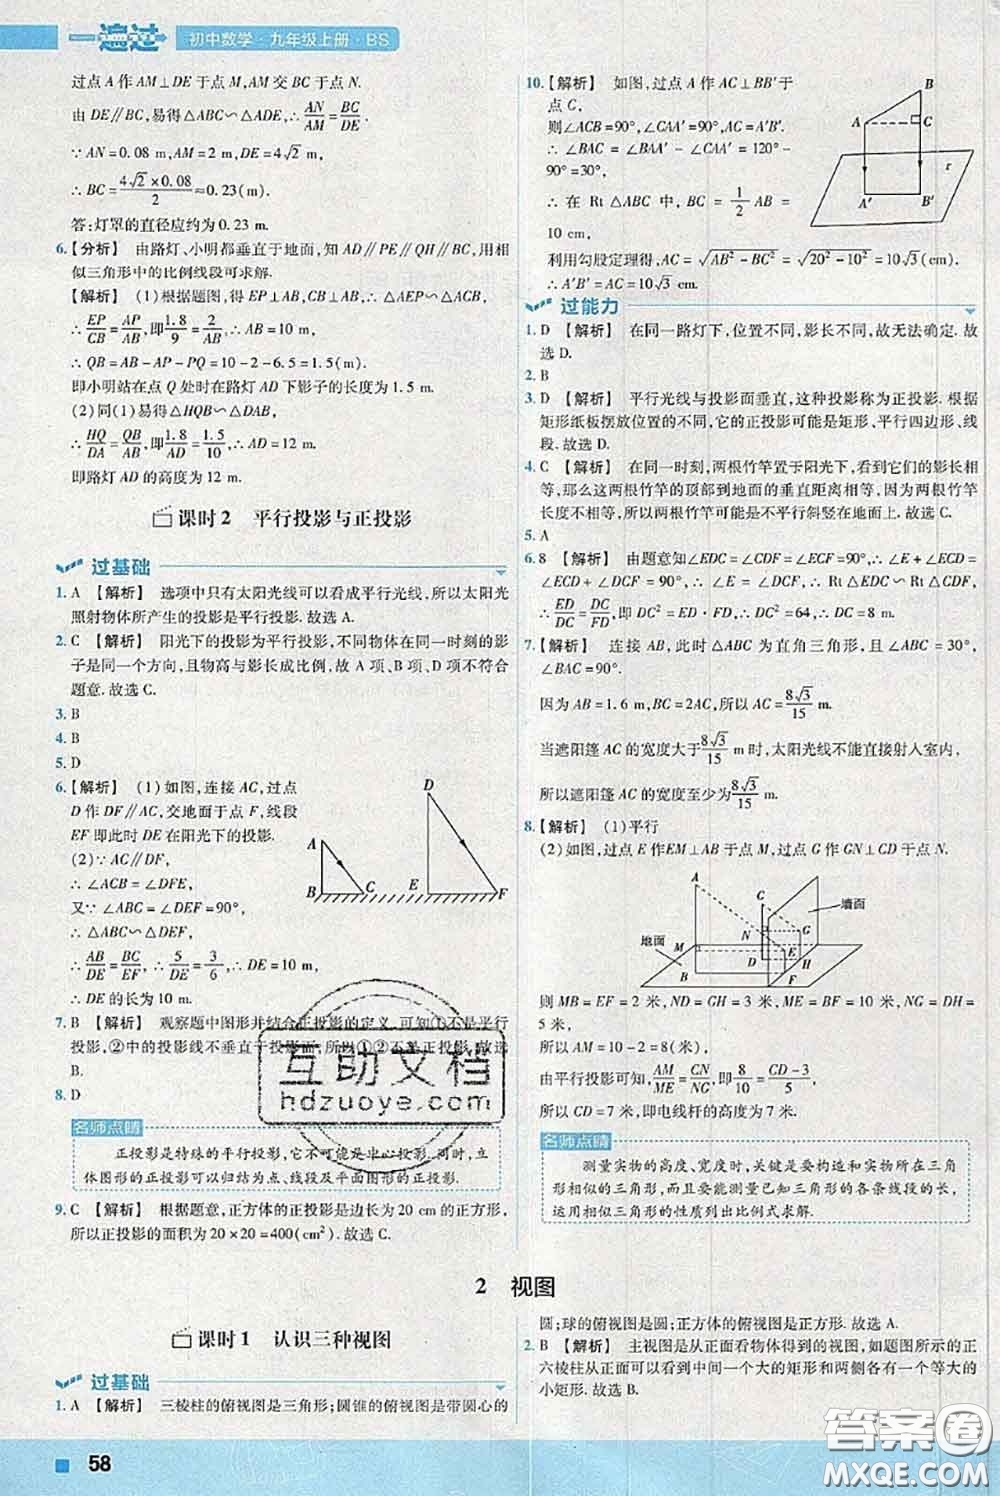 一遍过 初中数学·九年级上册·BS
过点 A 作 AM⊥DE 于点 M,AM 交 BC 于点 N.
由 DE∥BC,易得△ABC∽△ADE,∴ AN/AM = BC/DE.
∵ AN=0.08 m,AM=2 m,DE=4√2 m,
∴ BC= (4√2×0.08)/2 ≈0.23(m).
答:灯罩的直径应约为 0.23 m.
6.【分析】 由路灯、小明都垂直于地面,知 AD∥PE∥QH∥BC,用相
似三角形中的比例线段可求解.
【解析】 (1)根据题图,得 EP⊥AB,CB⊥AB,
∴ EP/CB = AP/AB,即 1.8/9 = 2/AB,∴ AB=10 m,
∴ QB=AB-AP-PQ=10-2-6.5=1.5(m).
即小明站在点 Q 处时在路灯 AD 下影子的长度为 1.5 m.
(2)同(1)易得△HQB∽△DAB,
∴ HQ/DA = QB/AB,即 1.8/DA = 1.5/10,∴ AD=12 m.
即路灯 AD 的高度为 12 m.
课时2 平行投影与正投影
过基础
1. A 【解析】 选项中只有太阳光线可以看成平行光线,所以太阳光
照射物体所产生的投影是平行投影.故选 A.
2. C 【解析】 阳光下的投影为平行投影,不同物体在同一时刻的影
子是同一个方向,且物高与影长成比例,故 A 项、B 项、D 项不符合
题意.故选 C.
3. B
4. B
5. D
6.【解析】 (1)如图,连接 AC,过点
D 作 DF∥AC,交地面于点 F,线段
EF 即此时 DE 在阳光下的投影.
(2)∵ AC∥DF,
∴ ∠ACB=∠DFE,
又∵ ∠ABC=∠DEF=90°,
∴ △ABC∽△DEF,
∴ AB/DE = BC/EF,∴ 5/DE = 3/6,∴ DE=10 m,
∴ DE 的长为 10 m.
A
B
C
D
E
F
7. B 【解析】 观察题中图形并结合正投影的定义,可知①不是平行
投影,②中的投影线不垂直于投影面,所以①②不是正投影.故选
B.
8. D
名师点睛
正投影是特殊的平行投影,它不可能是中心投影.同时,立
体图形的正投影可以归结为点、线段及平面图形的正投影.
9. C 【解析】 根据题意,正方体的正投影是边长为 20 cm 的正方形,
所以正投影的面积为 20×20=400(cm²).故选 C.
互助文档
hdzuoye.com
10.【解析】 如图,过点 A 作 AC⊥BB′于
点 C,
则∠ACB=90°,∠CAA′=90°,AC=A′B′.
∴ ∠BAC = ∠BAA′ − ∠CAA′ = 120°-
90°=30°,
∴ 在 Rt △ABC 中, BC = 1/2 AB =
10 cm.
A
B
C
r
A′
B′
利用勾股定理得,AC=√(AB²-BC²) = √(20²-10²) =10√3(cm),
∴ A′B′=AC=10√3 cm.
过能力
1. D 【解析】 在同一路灯下,位置不同,影长不同,故无法确定.故
选 D.
2. B
3. D 【解析】 平行光线与投影面垂直,这种投影称为正投影.根据
矩形纸板摆放位置的不同,它的正投影可能是矩形、平行四边形、线
段.故选 D.
4. C 【解析】 在同一时刻,两根竹竿置于阳光下,看到它们的影长
相等,那么这两根竹竿的顶部到地面的垂直距离相等,因为两根竹竿
长度不相等,所以两根竹竿可能是不平行斜竖在地面上.故选 C.
5. A
6. 8 【解析】 由题意知∠EDC=∠CDF=∠ECF=90°,∴ ∠E+∠ECD
=∠ECD+∠DCF=90°,∴ ∠E=∠DCF,∴ Rt△EDC∽Rt△CDF,
∴ ED/DC = DC/FD,即 DC²=ED·FD,∴ DC²=64,∴ DC=8 m.
7.【解析】 连接 AB,此时△ABC 为直角三角形,且∠ABC=30°,
∠BAC=90°.
因为 AB=1.6 m,BC=2AC,所以 AC= 8√3/15 m.
当遮阳篷 AC 的宽度大于 8√3/15 m 时,太阳光线不能直接射入室内,
所以遮阳篷 AC 的宽度至少为 8√3/15 m.
8.【解析】 (1)平行
(2)如图,过点 E 作EM⊥AB 于点 M,过点 G 作 GN⊥CD 于点 N.
A
C
墙面
N
G
地面
M
E
H
B
D
F
则 MB=EF=2 米,ND=GH=3 米,ME=BF=10 米,NG=DH=
5 米,
所以 AM=10-2=8(米),
由平行投影可知, AM/ME = CN/NG,即 8/10 = (CD-3)/5,
所以 CD=7 米,即电线杆的高度为 7 米.
名师点睛
测量实物的高度、宽度时,关键是要构造和实物所在三角
形相似的三角形,而且要能测量已知三角形的各条线段的长,
运用相似三角形的性质列出比例式求解.
2 视图
课时1 认识三种视图
过基础
1. A 【解析】 三棱柱的俯视图是三角形;圆锥的俯视图是带圆心的
圆;球的俯视图是圆;正方体的俯视图是正方形.故选 A.
2. B 【解析】 主视图是从正面看物体得到的视图,如题图所示的正
六棱柱从正面可以看到中间一个大的矩形和两侧各有一个等大的
小矩形.故选 B.
58
答案圈
MXQE.COM